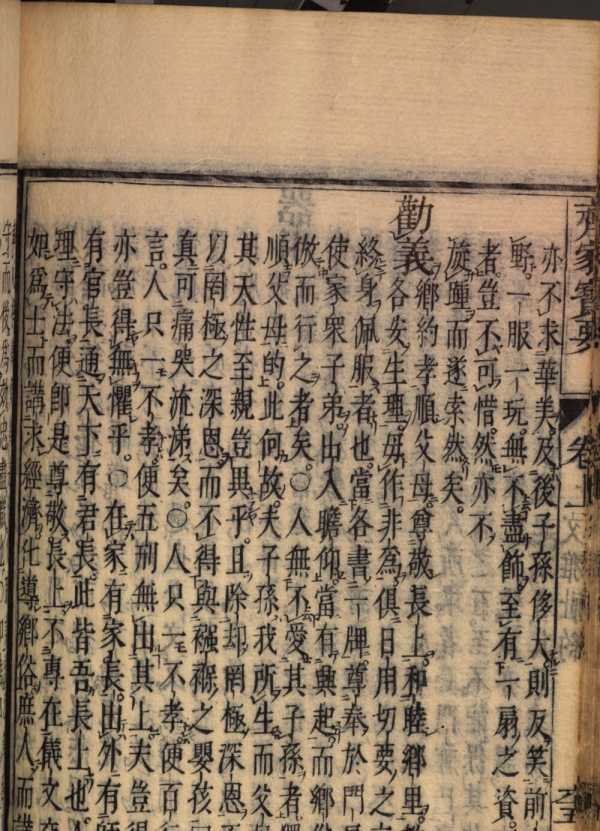 齊家寶要 卷上 文雅社約
亦不求華美及後子孫侈大則反笑前
野一服一玩無不盡飾至有一扇之資
者豈不可惜然亦不
旋踵而遂索然矣
勸義 鄉約孝順父母尊敬長上和睦鄉里教
各安生理毋作非為俱日用切要之
終身佩服者也當各書一牌尊奉於門
使家眾子弟出入瞻仰當有興起而鄉
倣而行之者矣○人無不愛其子孫者
順父母的此何故夫子孫我所生而父
其天性至親豈異乎且除却罔極深恩
以罔極之深恩而不得與襁褓之嬰孩
真可痛哭流涕矣○人只一不孝便百行
言人只一不孝便五刑無出其上夫豈得
亦豈得無懼乎○在家有家長出外有師
有官長通天下有君長此皆吾長上也
理守法便即是尊敬長上不專在儀文
如為士而講求經濟化導鄉俗庶人而謹